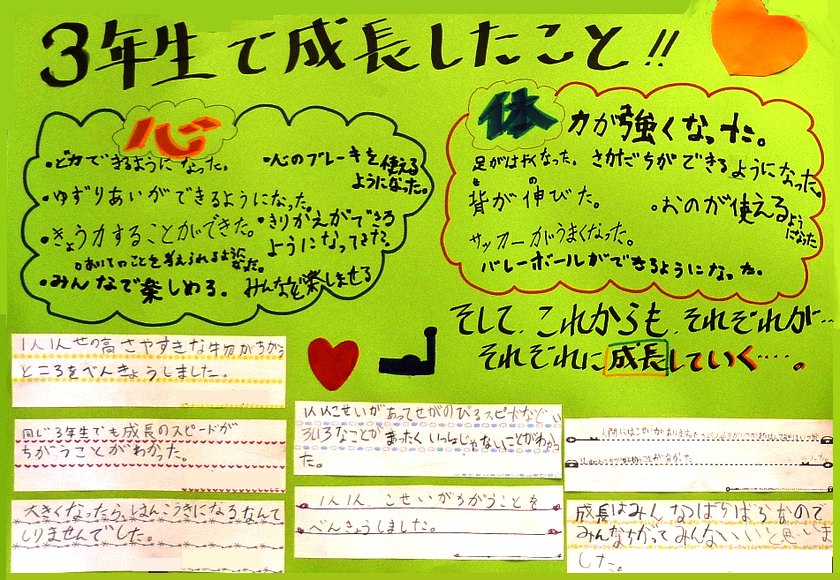 3年生で成長したこと!!
心
・どカできるようになった。
・心のブレーキを使える
ようになった。
・ゆずりあいができるようになった。
・きょう力することができた。
・きりかえができる
ようになってきた。
。あいてのことを考えられるように
なった。
・みんなで楽しめる。
みんなを楽しませる
体
力が強くなった。
足がはやくなった。
さかだちができるようになった。
せ の
背が伸びた。
。おのが使えるよう
になった
サッカーがうまくなった。
バレーボールができるようになった。
そして、これからも、それぞれが…
それぞれに成長していく…。
1人1人せの高さやすきな物がちがう
ところをべんきょうしました。
同じ3年生でも成長のスピードが
ちがうことがわかった。
大きくなったら、はんこうきになるなんて
しりませんでした。
1人1人こせいがあってせがのびるスピードなどい
ろいろなことがまったくいっしょじゃないことがわかっ
た。
1人1人 こせいがちがうことを
べんきょうしました。
人間にはこせいがあります
成長はみんなばらばらなので
みんなちがってみんないいと思いま
した。